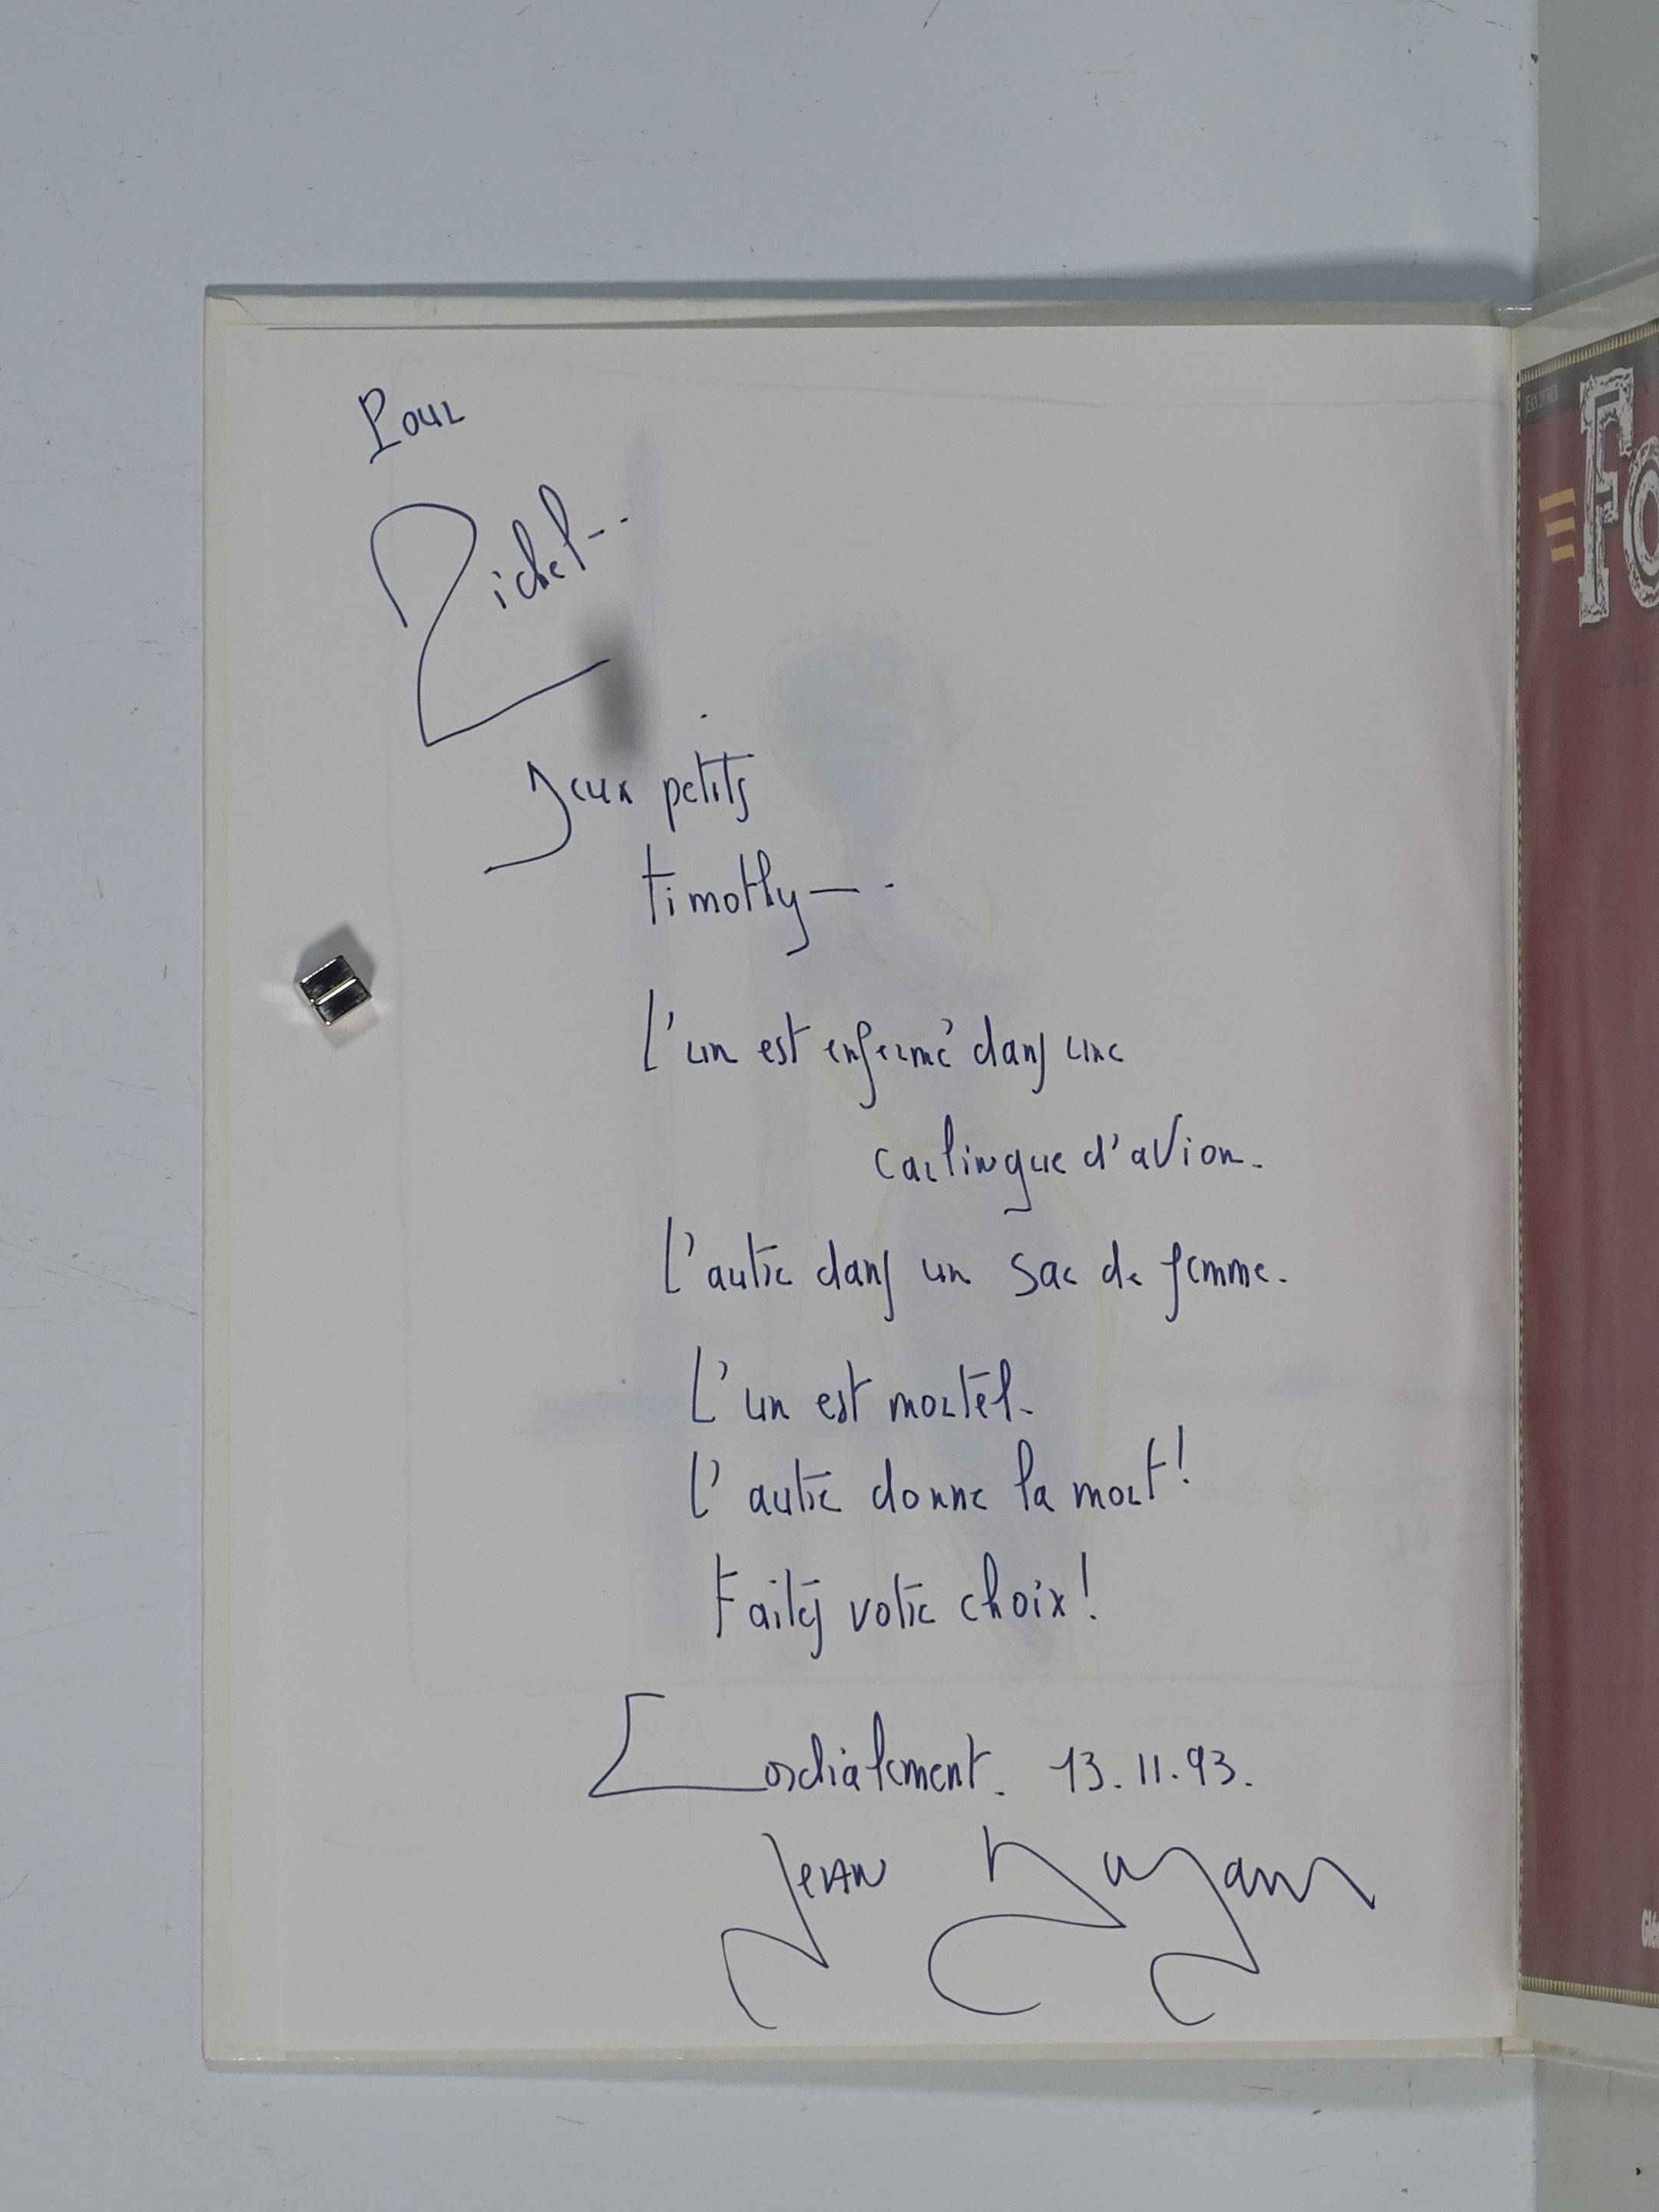 Pour
Michel...
Deux petits
timothy—.
L'un est enfermé dans une
carlingue d'avion.
L'autre dans un sac de femme.
L'un est mortel.
L'autre donne la mort!
Faites votre choix!
Cordialement. 13.11.93.
Jean Dufaux
Fo
Glé